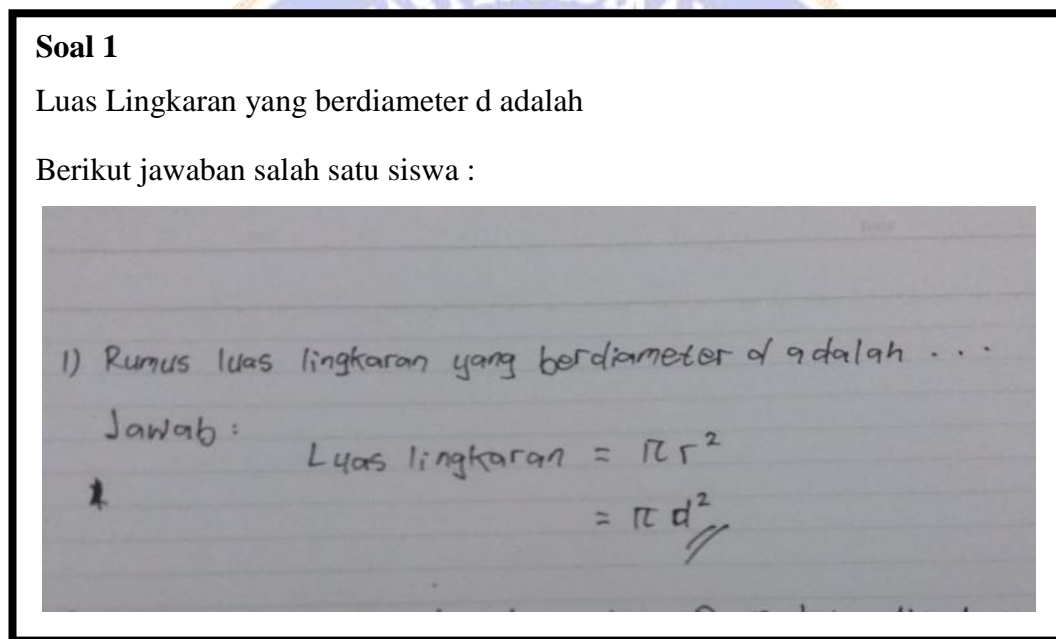 Soal 1
Luas Lingkaran yang berdiameter d adalah
Berikut jawaban salah satu siswa :
1) Rumus luas lingkaran yang berdiameter d adalah ...
Jawab :
Luas lingkaran = π r²
= π d²